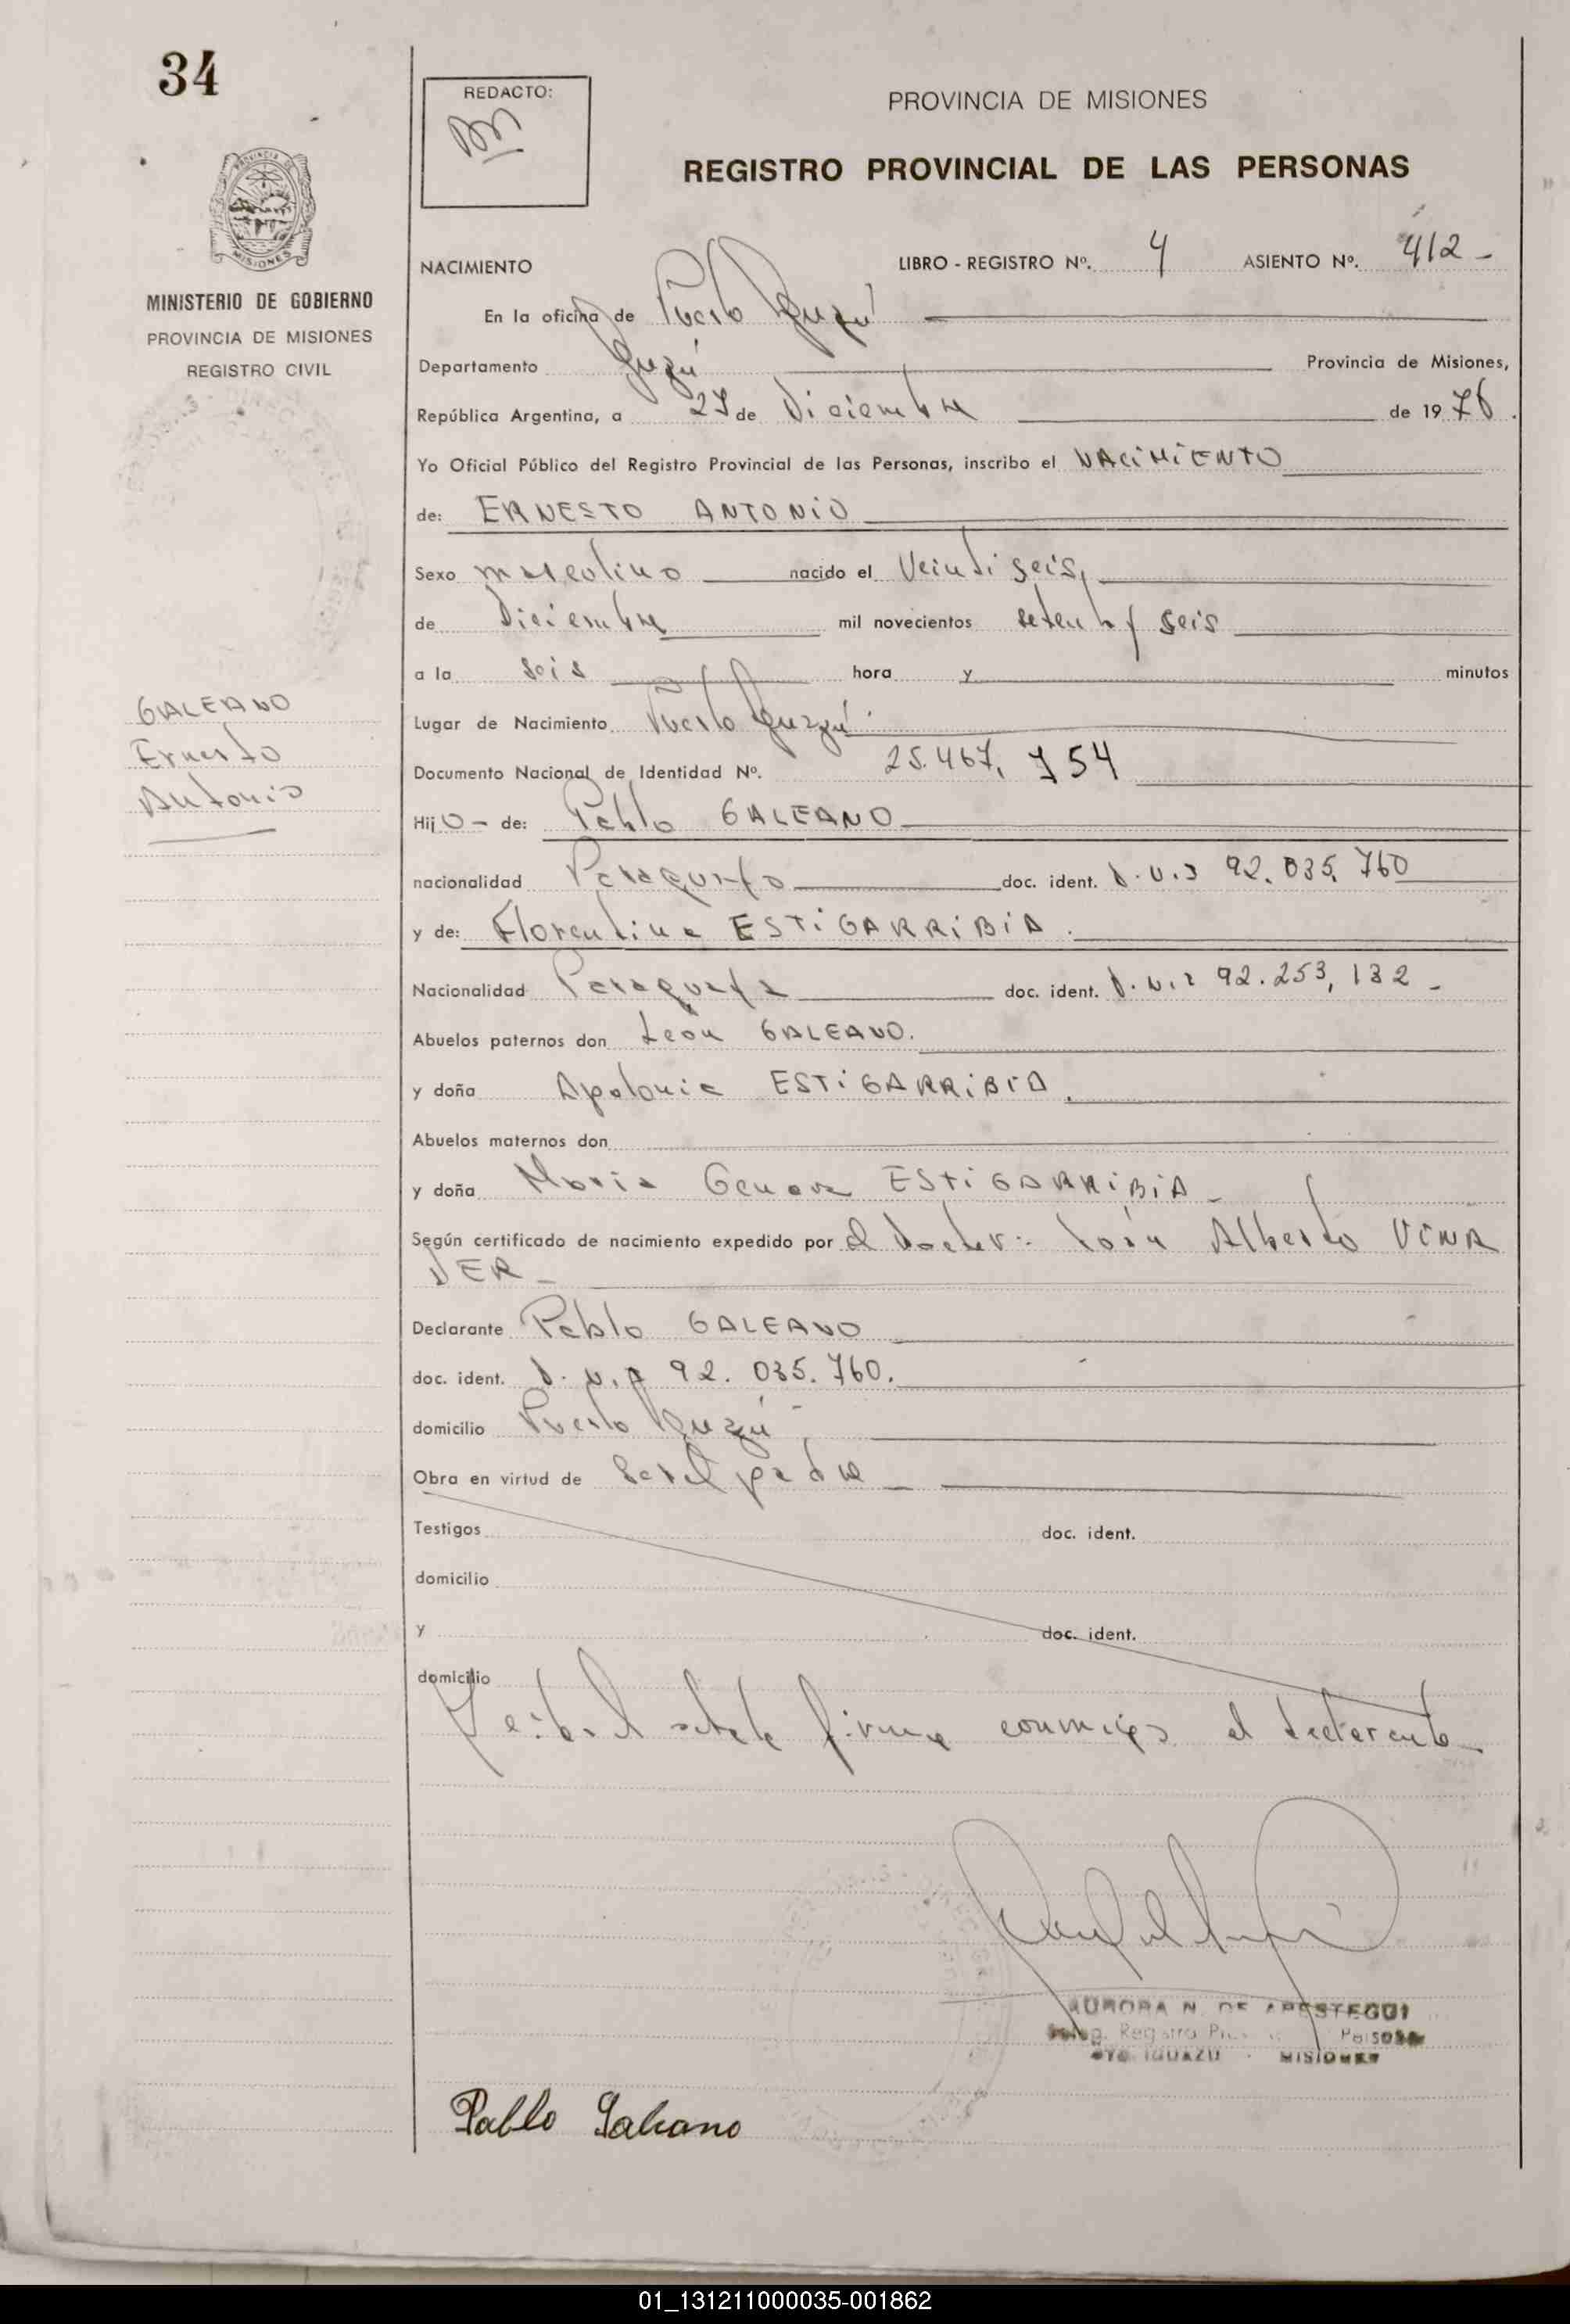 34
REDACTO:
PROVINCIA DE MISIONES
REGISTRO PROVINCIAL DE LAS PERSONAS
MINISTERIO DE GOBIERNO
PROVINCIA DE MISIONES
REGISTRO CIVIL
GALEANO
Ernesto
Antonio
NACIMIENTO LIBRO - REGISTRO Nº. 4 ASIENTO Nº. 412 -
En la oficina de Puerto Iguazú
Departamento Iguazú Provincia de Misiones,
República Argentina, a 27 de Diciembre de 1976.
Yo Oficial Público del Registro Provincial de las Personas, inscribo el NACIMIENTO
de: ERNESTO ANTONIO
Sexo masculino nacido el Veintiseis,
de Diciembre mil novecientos setenta y seis
a la seis hora y minutos
Lugar de Nacimiento Puerto Iguazú.
Documento Nacional de Identidad Nº. 25.467.754
Hijo - de: Pablo GALEANO
nacionalidad Paraguayo doc. ident. D.N.I 92.035.760
y de: Florentina ESTIGARRIBIA.
Nacionalidad Paraguaya doc. ident. D.N.I 92.253,132 -
Abuelos paternos don León GALEANO.
y doña Apolonia ESTIGARRIBIA.
Abuelos maternos don
y doña María Genova ESTIGARRIBIA -
Según certificado de nacimiento expedido por el Doctor: José Alberto VINA
DER -
Declarante Pablo GALEANO
doc. ident. D.N.I 92.035.760.
domicilio Puerto Iguazú
Obra en virtud de ser el padre
Testigos doc. ident.
domicilio
y doc. ident.
domicilio
Leída el acta la firma conmigo el declarante -
AURORA N. DE APESTEGUI
Deleg. Registro Personas
PTO. IGUAZU - MISIONES
Pablo Galeano
01_131211000035-001862